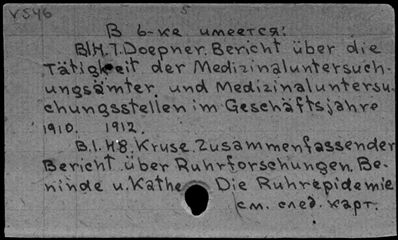 V546
5
В б-ке имеется:
B.I.H.7. Doepner. Bericht über die
Tätigkeit der Medizinaluntersuch-
ungsämter und Medizinaluntersu-
chungsstellen im Geschäftsjahre
1910. 1912.
B.I.H8. Kruse. Zusammenfassender
Bericht über Ruhrforschungen. Be-
ninde u. Kathe Die Ruhrepidemie
см. след. карт.